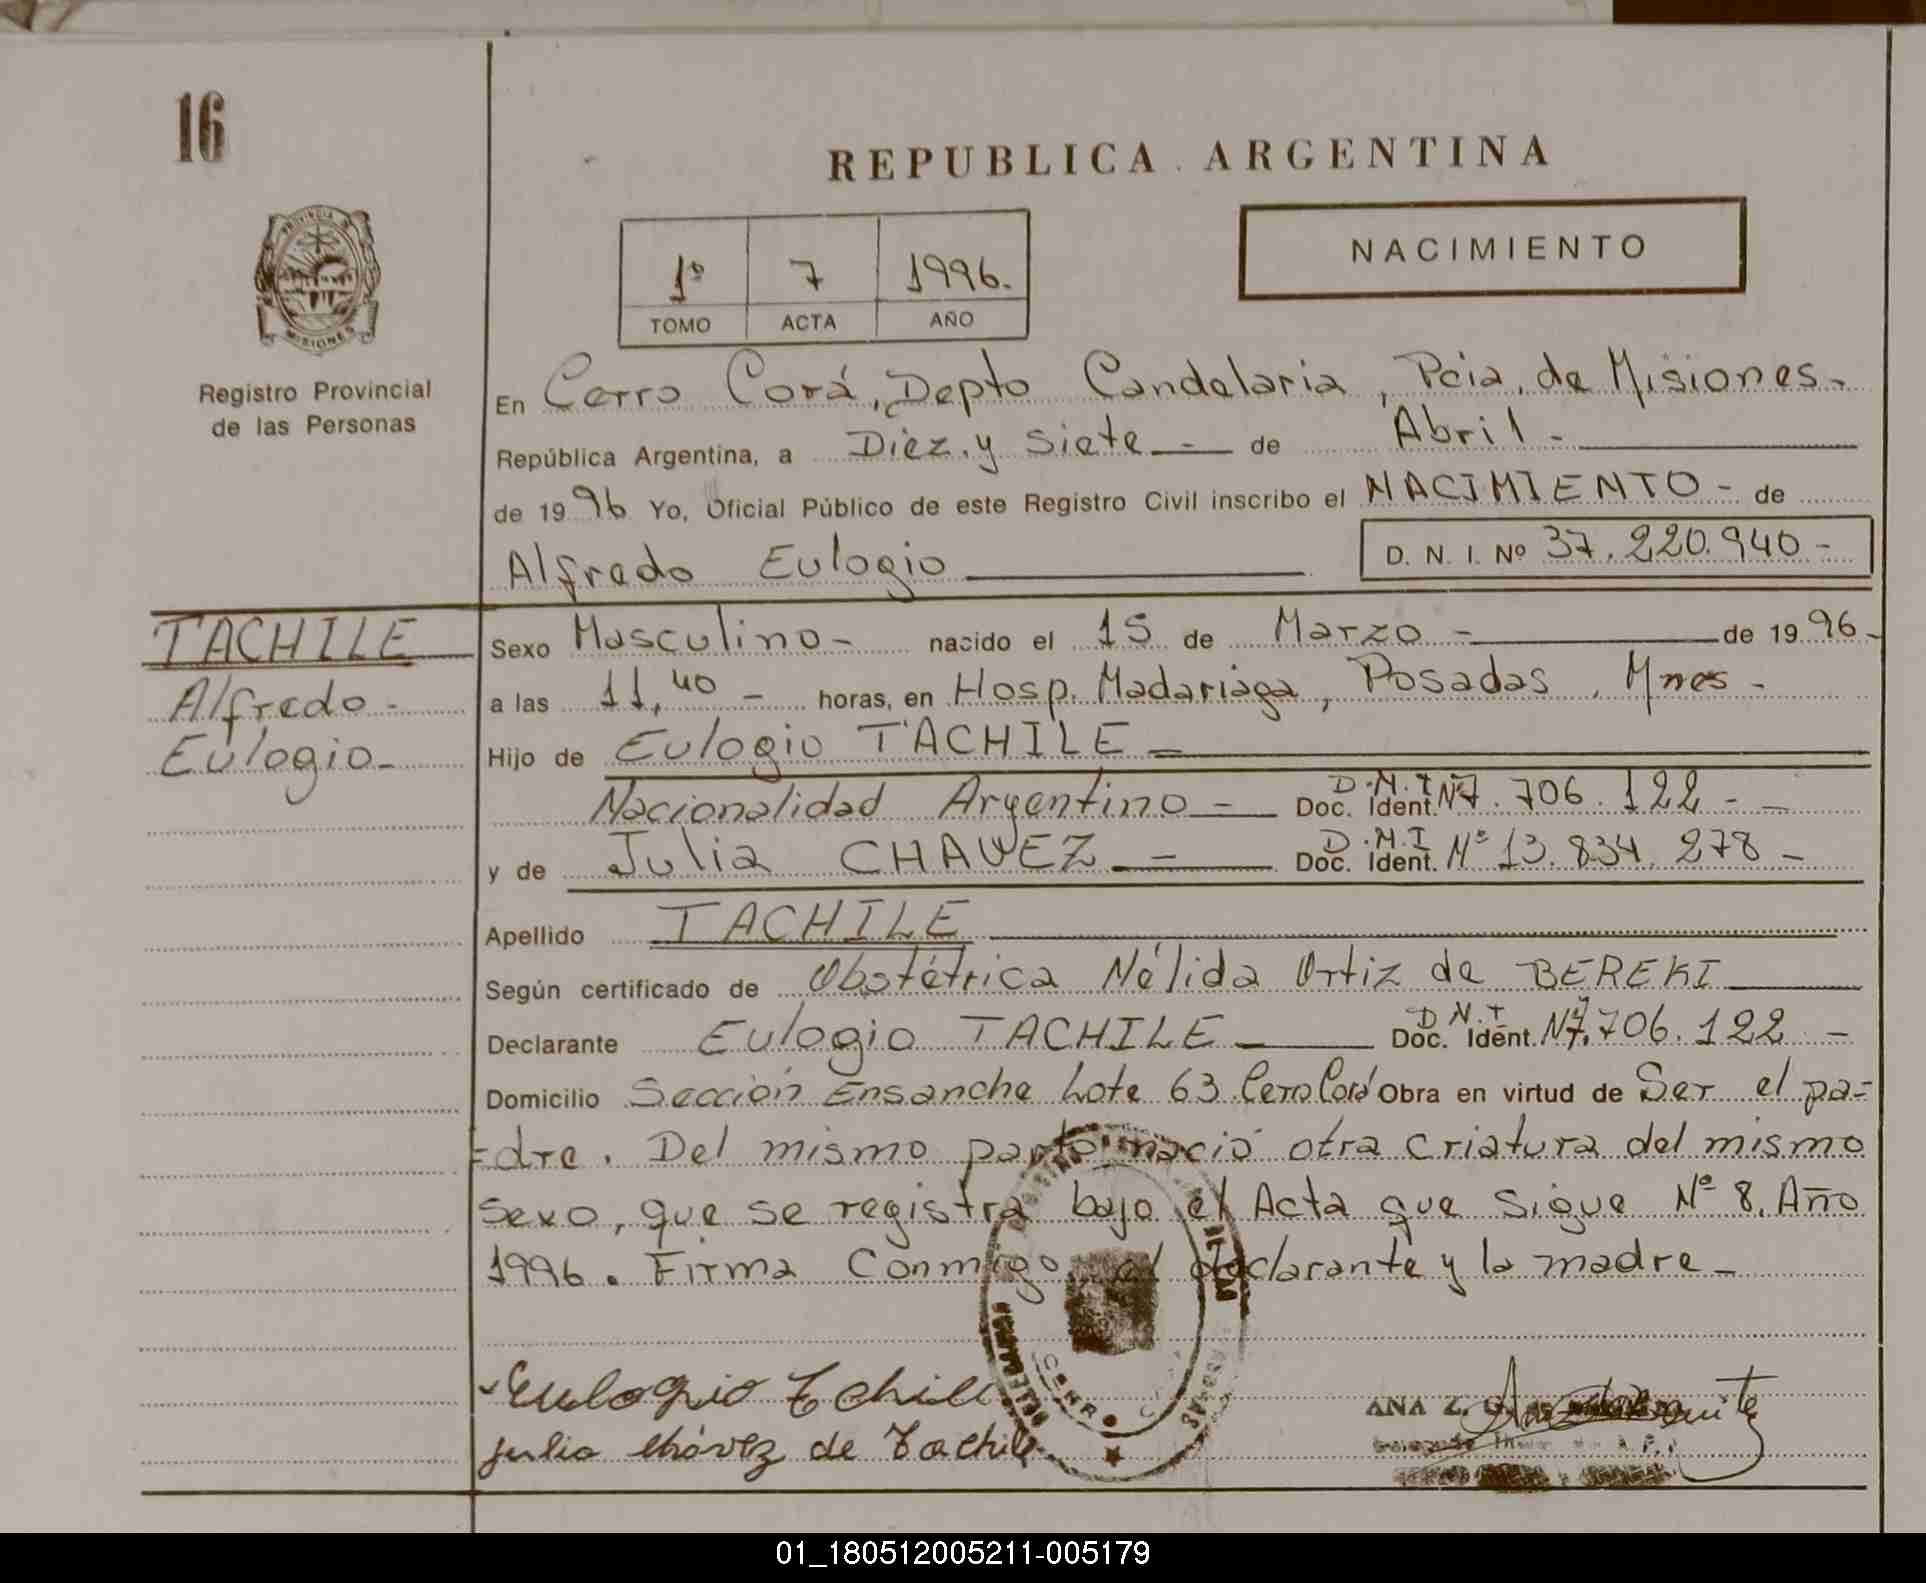 16
REPUBLICA ARGENTINA
PROVINCIA
MISIONES
Registro Provincial
de las Personas
1º 7 1996.
TOMO ACTA AÑO
NACIMIENTO
En Cerro Corá, Depto Candelaria, Pcia. de Misiones.
República Argentina, a Diez y siete - de Abril -
de 1996 Yo, Oficial Público de este Registro Civil inscribo el NACIMIENTO - de
Alfredo Eulogio D. N. I. Nº 37.220.940 -
TACHILE
Alfredo -
Eulogio -
Sexo Masculino - nacido el 15 de Marzo - de 1996 -
a las 11,40 - horas, en Hosp. Madariaga, Posadas, Mnes -
Hijo de Eulogio TACHILE -
Nacionalidad Argentino - D.N.I Doc. Ident. Nº 7.706.122 - -
y de Julia CHAVEZ - D.N.I Doc. Ident. Nº 13.834.278 -
Apellido TACHILE
Según certificado de Obstétrica Nélida Ortiz de BEREKI
Declarante Eulogio TACHILE - D.N.I Doc. Ident. Nº 7.706.122 -
Domicilio Sección Ensanche Lote 63 Cerro Corá Obra en virtud de Ser el pa-
-dre. Del mismo parto nació otra criatura del mismo
sexo, que se registra bajo el Acta que sigue Nº 8. Año
1996. Firma Conmigo el declarante y la madre -
Eulogio Tchile
Julia Chávez de Tachile
ANA Z.
01_180512005211-005179